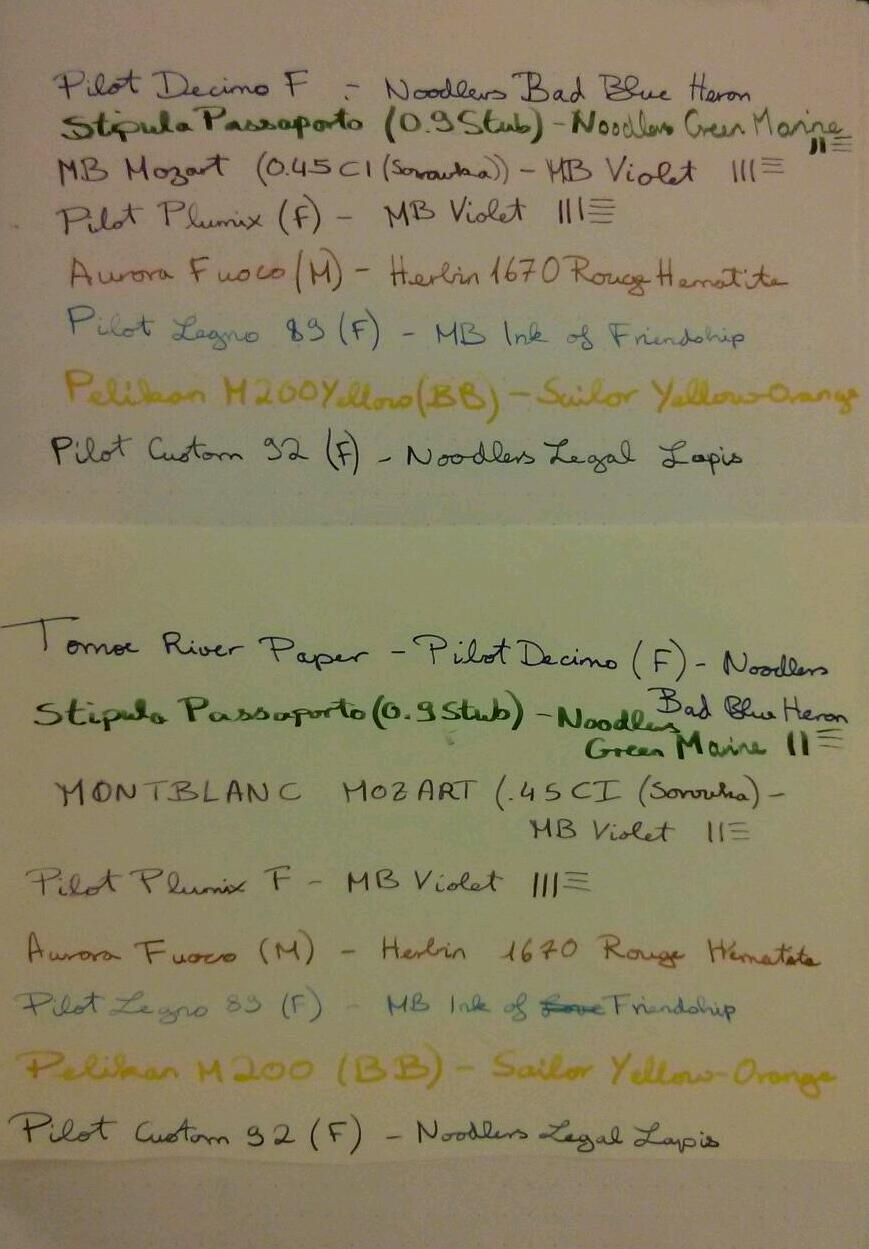 Pilot Decimo F - Noodlers Bad Blue Heron
Stipula Passaporto (0.9 Stub) - Noodlers Green Marine
MB Mozart (0.45 CI (Sorowka)) - MB Violet
Pilot Plumix (F) - MB Violet
Aurora Fuoco (M) - Herbin 1670 Rouge Hematite
Pilot Legno 89 (F) - MB Ink of Friendship
Pelikan M200 Yellow (BB) - Sailor Yellow-Orange
Pilot Custom 92 (F) - Noodlers Legal Lapis
Tomoe River Paper - Pilot Decimo (F) - Noodlers
Bad Blue Heron
Stipula Passaporto (0.9 Stub) - Noodlers
Green Marine
MONTBLANC MOZART (.45 CI (Sorowka) -
MB Violet
Pilot Plumix F - MB Violet
Aurora Fuoco (M) - Herbin 1670 Rouge Hematite
Pilot Legno 89 (F) - MB Ink of Love Friendship
Pelikan M200 (BB) - Sailor Yellow-Orange
Pilot Custom 92 (F) - Noodlers Legal Lapis